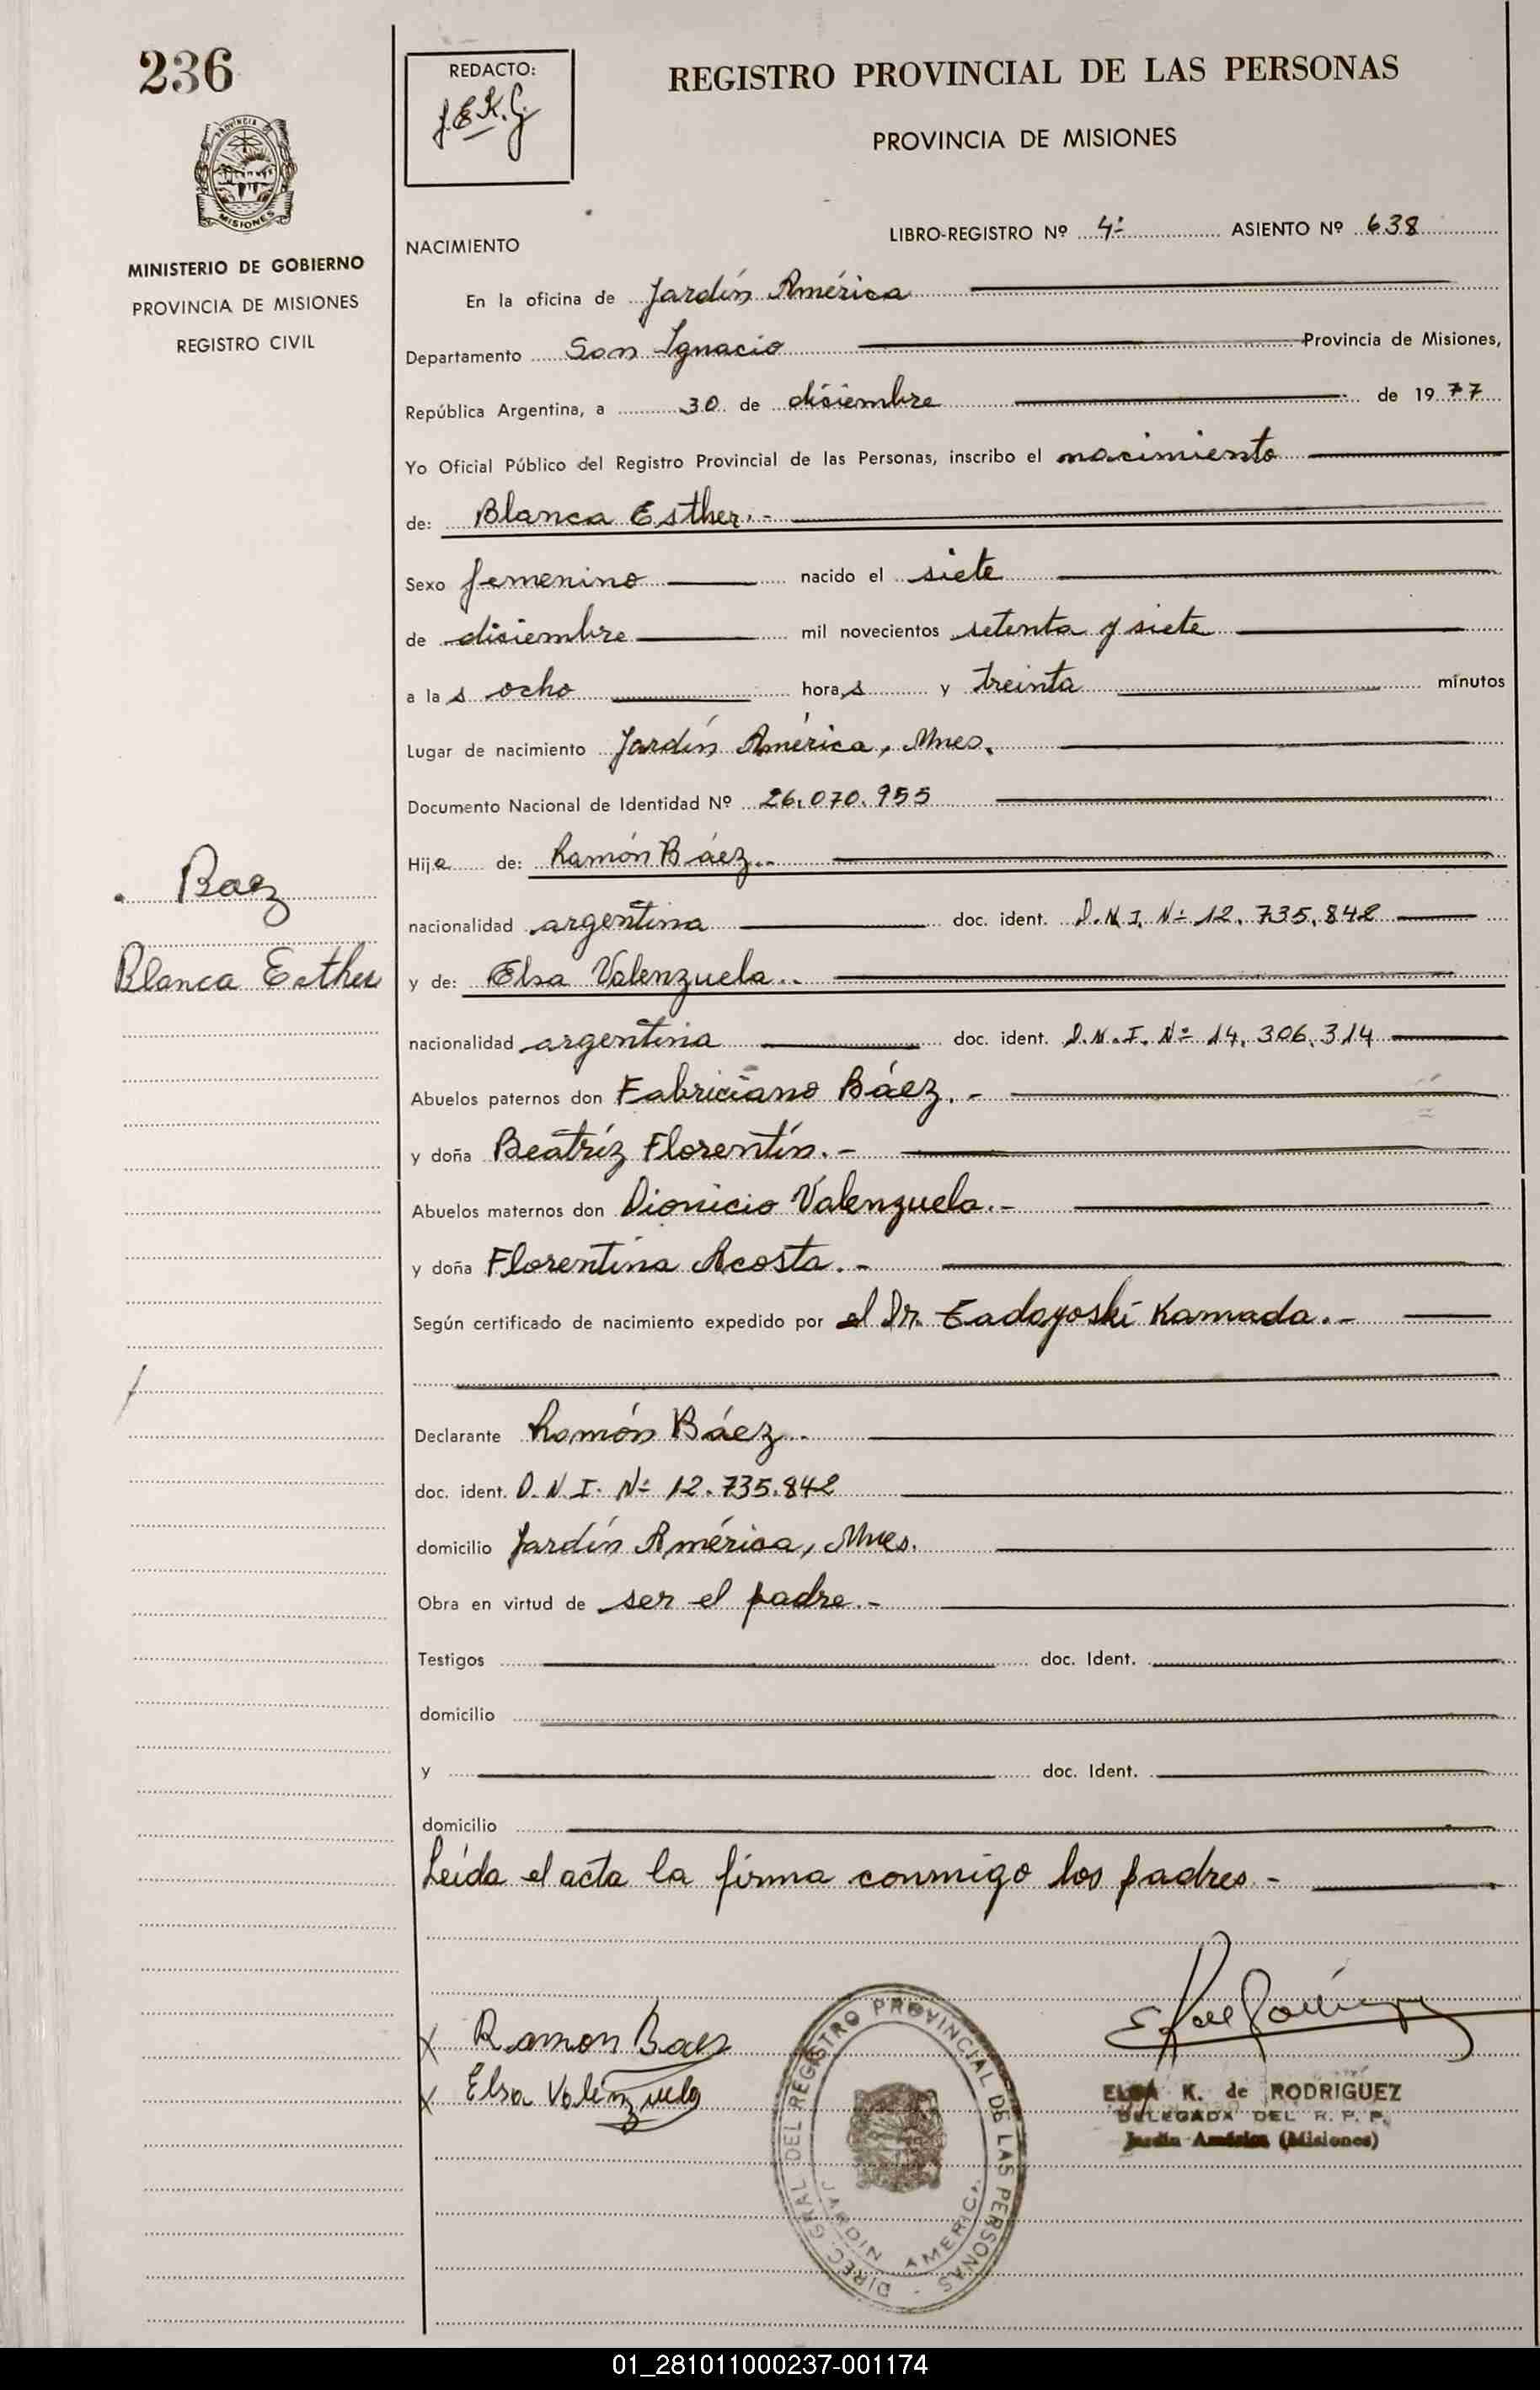 236
PROVINCIA DE
MISIONES
MINISTERIO DE GOBIERNO
PROVINCIA DE MISIONES
REGISTRO CIVIL
REDACTO:
J.E.K.G.
REGISTRO PROVINCIAL DE LAS PERSONAS
PROVINCIA DE MISIONES
LIBRO-REGISTRO Nº 4º ASIENTO Nº 638
NACIMIENTO
En la oficina de Jardín América
Departamento San Ignacio Provincia de Misiones,
República Argentina, a 30 de diciembre de 1977
Yo Oficial Público del Registro Provincial de las Personas, inscribo el nacimiento
de: Blanca Esther.-
Sexo femenino nacido el siete
de diciembre mil novecientos setenta y siete
a las ocho horas y treinta minutos
Lugar de nacimiento Jardín América, Mnes.
Documento Nacional de Identidad Nº 26.070.955
Hija de: Ramón Báez.-
nacionalidad argentina doc. ident. D.N.I. Nº 12.735.842
y de: Elsa Valenzuela.-
nacionalidad argentina doc. ident. D.N.I. Nº 14.306.314
Abuelos paternos don Fabriciano Báez.-
y doña Beatríz Florentín.-
Abuelos maternos don Dionicio Valenzuela.-
y doña Florentina Acosta.-
Según certificado de nacimiento expedido por el Dr. Tadayoski Kamada.-
Declarante Ramón Báez.-
doc. ident. D.N.I. Nº 12.735.842
domicilio Jardín América, Mnes.
Obra en virtud de ser el padre.-
Testigos doc. Ident.
domicilio
y doc. Ident.
domicilio
Leída el acta la firma conmigo los padres.-
Baez
Blanca Esther
x Ramon Baes
x Elsa Valenzuela
DIREC. GRAL. DEL REGISTRO PROVINCIAL DE LAS PERSONAS -
JARDIN AMERICA
ELSA K. de RODRIGUEZ
DELEGADA DEL R. P. P.
Jardín América (Misiones)
01_281011000237-001174